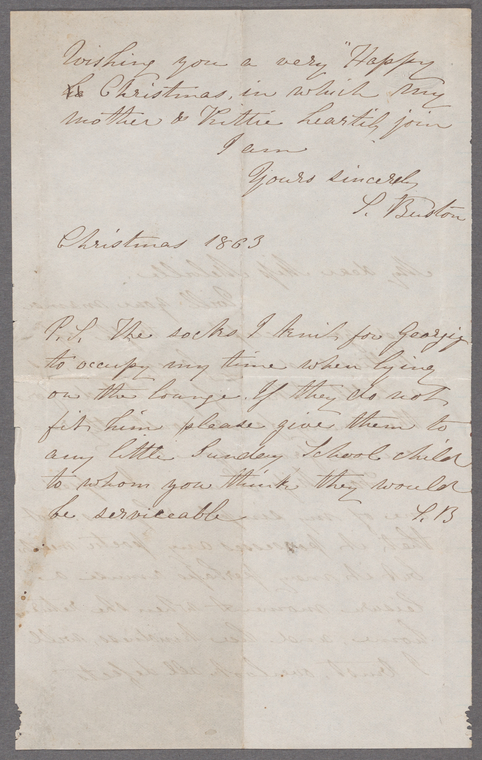 Wishing you a very "Happy
Christmas, in which my
mother & Kittie heartily join
I am
Yours sincerely
S. Burton
Christmas 1863
P.S. The socks I knit for Georgie
to occupy my time when lying
on the lounge. If they do not
fit him please give them to
any little Sunday School child
to whom you think they would
be serviceable
S.B